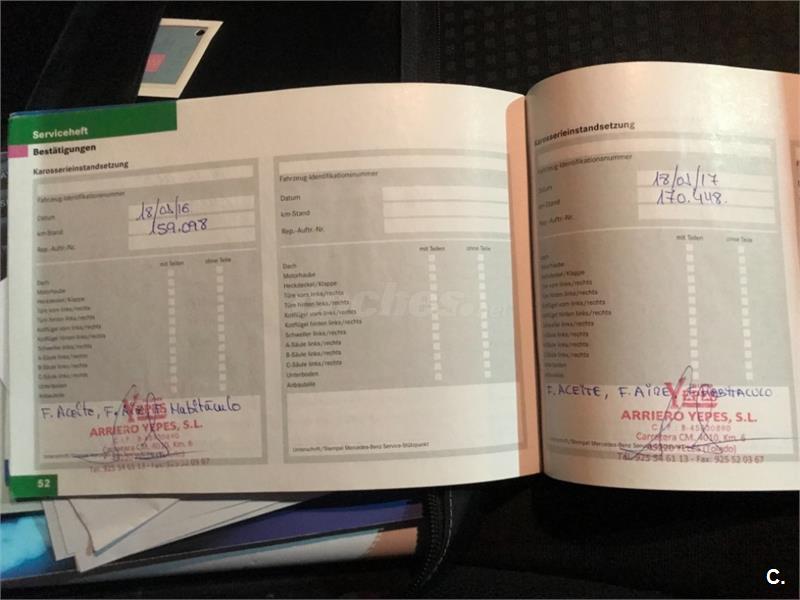 Serviceheft
Bestätigungen
Karosserieinstandsetzung
Fahrzeug-Identifikationsnummer
Datum 18/03/16
km-Stand 159.098
Rep.-Auftr.-Nr.
mit Teilen ohne Teile
Dach
Motorhaube
Heckdeckel/Klappe
Türe vorn links/rechts
Türe hinten links/rechts
Kotflügel vorn links/rechts
Kotflügel hinten links/rechts
Schweller links/rechts
A-Säule links/rechts
B-Säule links/rechts
C-Säule links/rechts
Unterboden
Anbauteile
F. Aceite, F. Aire F. Habitáculo
YEPES
ARRIERO YEPES, S.L.
Carretera CM. 4010, Km. 6
Tel. 925 54 61 13 - Fax: 925 52 03 67
52
Fahrzeug-Identifikationsnummer
Datum
km-Stand
Rep.-Auftr.-Nr.
mit Teilen ohne Teile
Dach
Motorhaube
Heckdeckel/Klappe
Türe vorn links/rechts
Türe hinten links/rechts
Kotflügel vorn links/rechts
Kotflügel hinten links/rechts
Schweller links/rechts
A-Säule links/rechts
B-Säule links/rechts
C-Säule links/rechts
Unterboden
Anbauteile
Unterschrift/Stempel Mercedes-Benz Service-Stützpunkt
Karosserieinstandsetzung
Fahrzeug-Identifikationsnummer
Datum 18/03/17
km-Stand 170.448.
Rep.-Auftr.-Nr.
mit Teilen ohne Teile
Dach
Motorhaube
Heckdeckel/Klappe
Türe vorn links/rechts
Türe hinten links/rechts
Kotflügel vorn links/rechts
Kotflügel hinten links/rechts
Schweller links/rechts
A-Säule links/rechts
B-Säule links/rechts
C-Säule links/rechts
Unterboden
F. ACEITE, F. AIRE F. HABITACULO
YEPES
ARRIERO YEPES, S.L.
Carretera CM. 4010, Km. 6
Tel. 925 54 61 13 - Fax: 925 52 03 67
C.